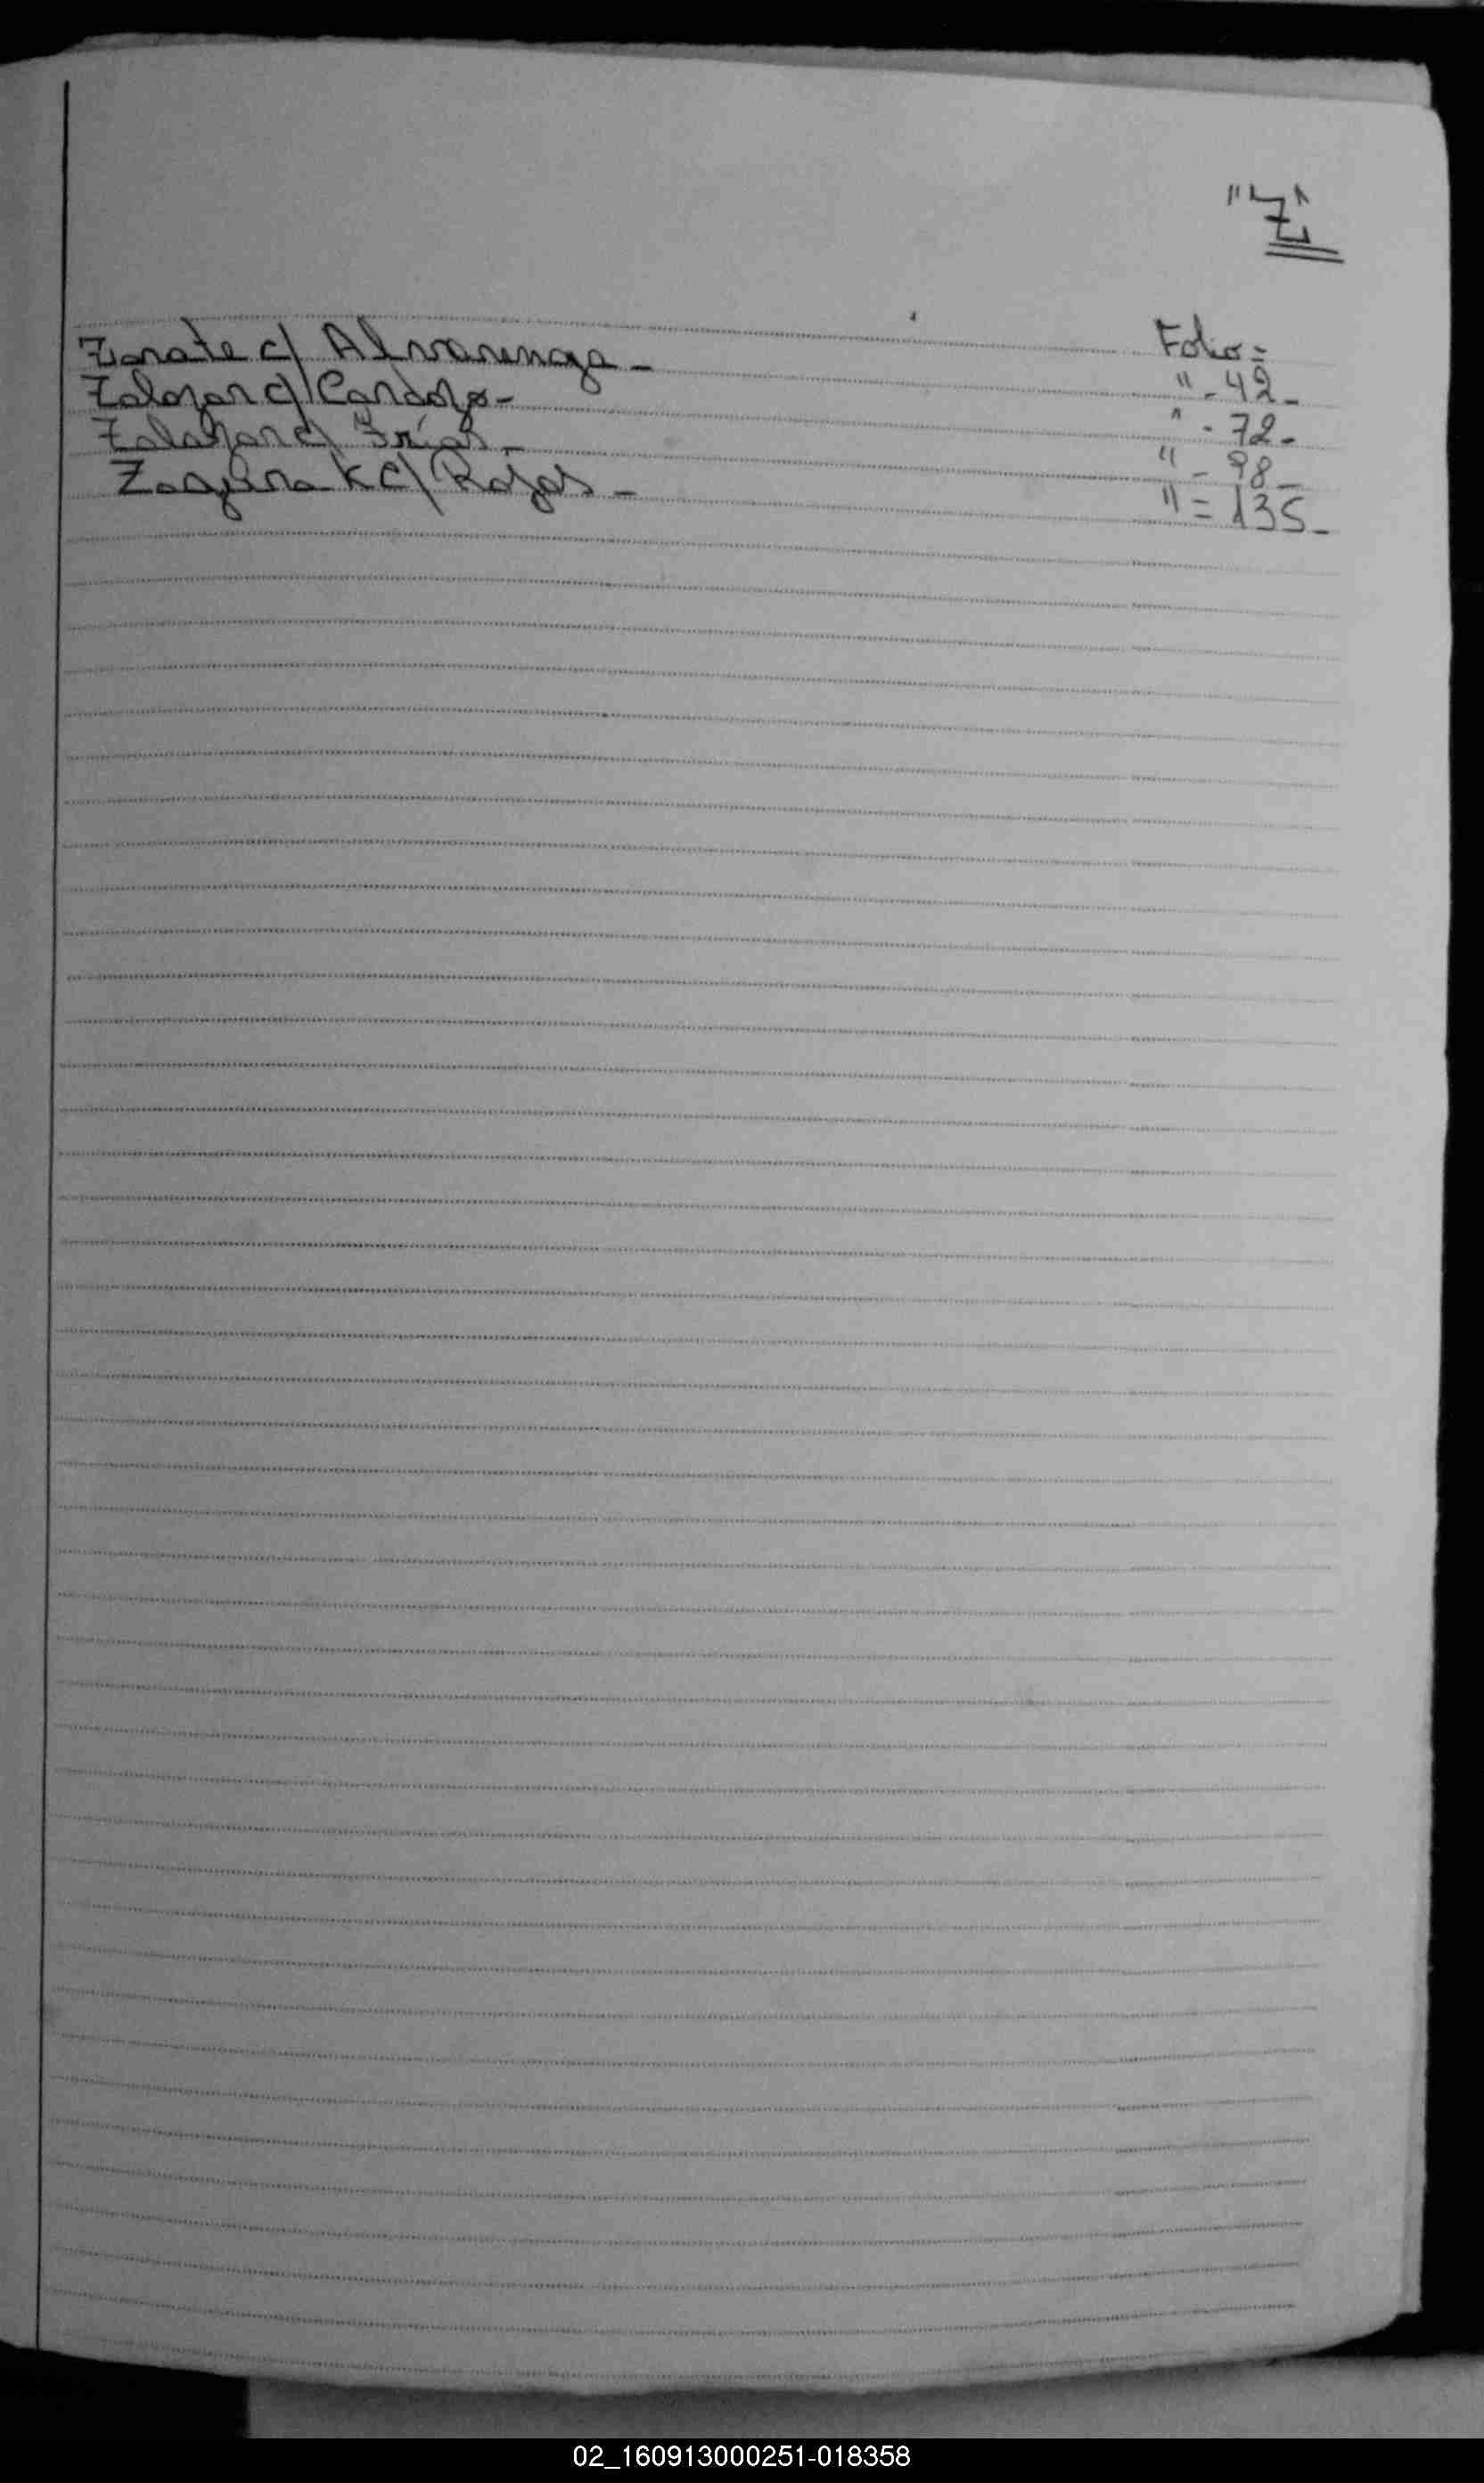 "Z"
Folio =
Zarate c/ Alvarenga - " - 42 -
Zalazar c/ Cardozo - " - 72 -
Zalazar c/ Frías - " - 98 -
K c/ Rojas - " = 135 -
02_160913000251-018358